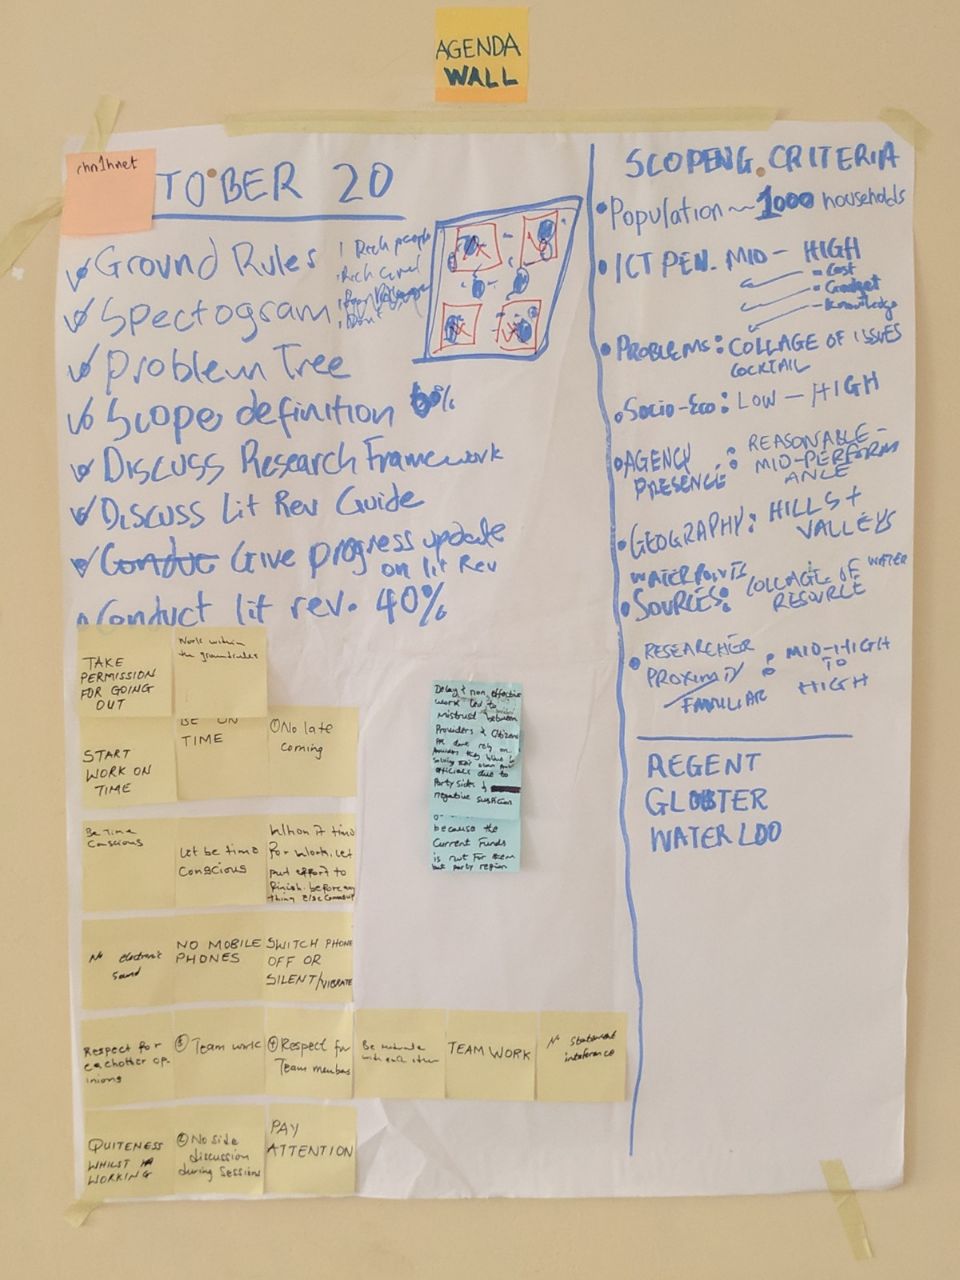 AGENDA
WALL
TOBER 20
Ground Rules
Spectogram
Problem Tree
Scope definition %
Discuss Research Framework
Discuss Lit Rev Guide
Give progress update
on lit Rev
Conduct lit rev. 40%
Rich people
SCOPENG.CRITERIA
Population ~ 1000 households
ICT PEN. MID - HIGH
Cost
Gadget
Knowledge
PROBLEMS: COLLAGE OF ISSUES
COCKTAIL
SOCIO-ECO: LOW - HIGH
AGENCY PRESENCE: REASONABLE-
MID-PERFORM
ANCE
GEOGRAPHY: HILLS +
VALLEYS
WATER POINTS
SOURCES: COLLAGE OF WATER
RESOURCE
RESEARCHER
PROXIMITY: MID-HIGH
TO
HIGH
FAMILIAR
REGENT
GLOSTER
WATERLOO
TAKE
PERMISSION
FOR GOING
OUT
Work within
the groundrules
START
WORK ON
TIME
BE ON
TIME
① No late
coming
Be Time
Conscious
Let be time
Conscious
When it time
for work, let
put effort to
finish before any
thing else
No electronic
sound
NO MOBILE
PHONES
SWITCH PHONE
OFF OR
SILENT/VIBRATE
Respect for
eachother op-
inions
③ Team work
④ Respect for
Team members
TEAM WORK
No statement
inteference
QUITENESS
WHILST
WORKING
② No side
discussion
during Sessions
PAY
ATTENTION
Delay & non effective
work led to
Mistrust between
Providers & Citizens
officials due to
Party sides &
negative suspicion
because the
Current Funds
is not for them
but party region